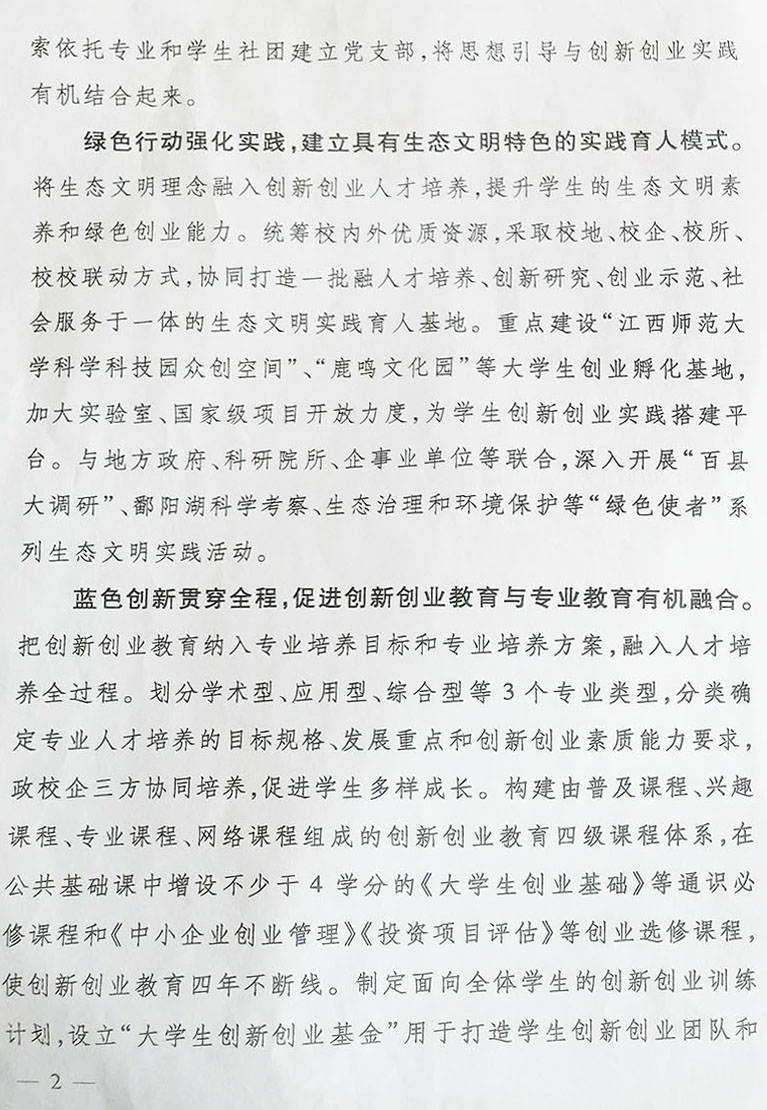 索依托专业和学生社团建立党支部，将思想引导与创新创业实践
有机结合起来。
绿色行动强化实践，建立具有生态文明特色的实践育人模式。
将生态文明理念融入创新创业人才培养，提升学生的生态文明素
养和绿色创业能力。统筹校内外优质资源，采取校地、校企、校所、
校校联动方式，协同打造一批融人才培养、创新研究、创业示范、社
会服务于一体的生态文明实践育人基地。重点建设“江西师范大
学科学科技园众创空间”、“鹿鸣文化园”等大学生创业孵化基地，
加大实验室、国家级项目开放力度，为学生创新创业实践搭建平
台。与地方政府、科研院所、企事业单位等联合，深入开展“百县
大调研”、鄱阳湖科学考察、生态治理和环境保护等“绿色使者”系
列生态文明实践活动。
蓝色创新贯穿全程，促进创新创业教育与专业教育有机融合。
把创新创业教育纳入专业培养目标和专业培养方案，融入人才培
养全过程。划分学术型、应用型、综合型等3个专业类型，分类确
定专业人才培养的目标规格、发展重点和创新创业素质能力要求，
政校企三方协同培养，促进学生多样成长。构建由普及课程、兴趣
课程、专业课程、网络课程组成的创新创业教育四级课程体系，在
公共基础课中增设不少于4学分的《大学生创业基础》等通识必
修课程和《中小企业创业管理》《投资项目评估》等创业选修课程，
使创新创业教育四年不断线。制定面向全体学生的创新创业训练
计划，设立“大学生创新创业基金”用于打造学生创新创业团队和
— 2 —